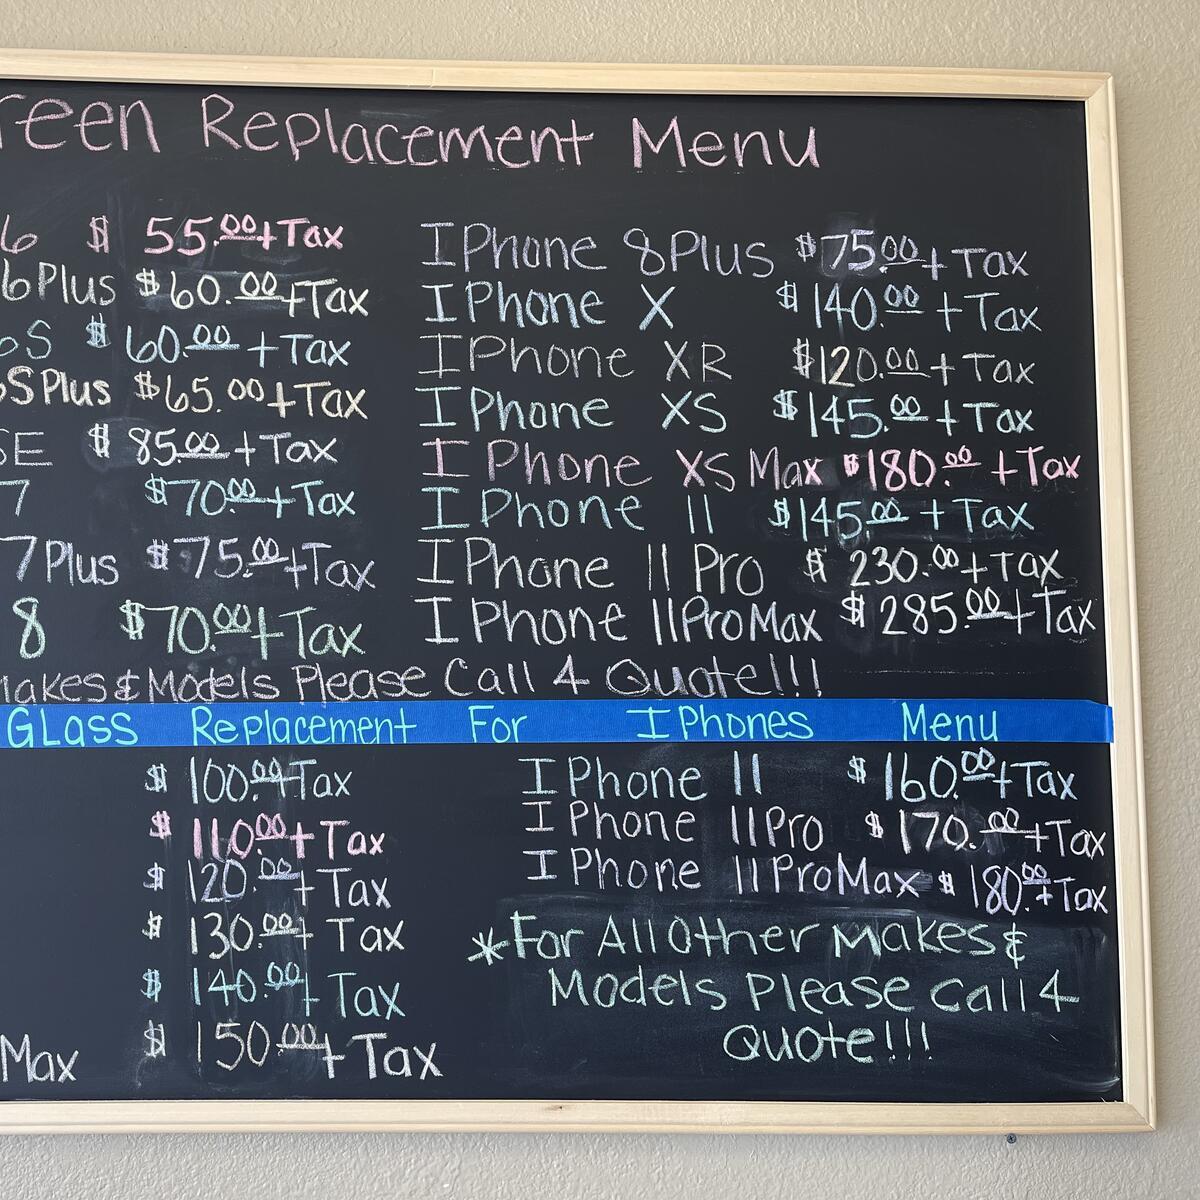 reen Replacement Menu
6 $ 55.00+Tax
6Plus $60.00+Tax
6S $60.00+Tax
6SPlus $65.00+Tax
SE $ 85.00+Tax
7 $70.00+Tax
7Plus $75.00+Tax
8 $70.00+Tax
IPhone 8Plus $75.00+Tax
IPhone X $140.00+Tax
IPhone XR $120.00+Tax
IPhone XS $145.00+Tax
IPhone XS Max $180.00+Tax
IPhone 11 $145.00+Tax
IPhone 11 Pro $ 230.00+Tax
IPhone 11ProMax $ 285.00+Tax
makes & Models Please Call 4 Quote!!!
GLass Replacement For IPhones Menu
$ 100.00+Tax
$ 110.00+Tax
$ 120.00+Tax
$ 130.00+Tax
$ 140.00+Tax
Max $ 150.00+Tax
IPhone 11 $ 160.00+Tax
IPhone 11Pro $ 170.00+Tax
IPhone 11ProMax $ 180.00+Tax
*For All Other Makes &
Models Please Call 4
Quote!!!